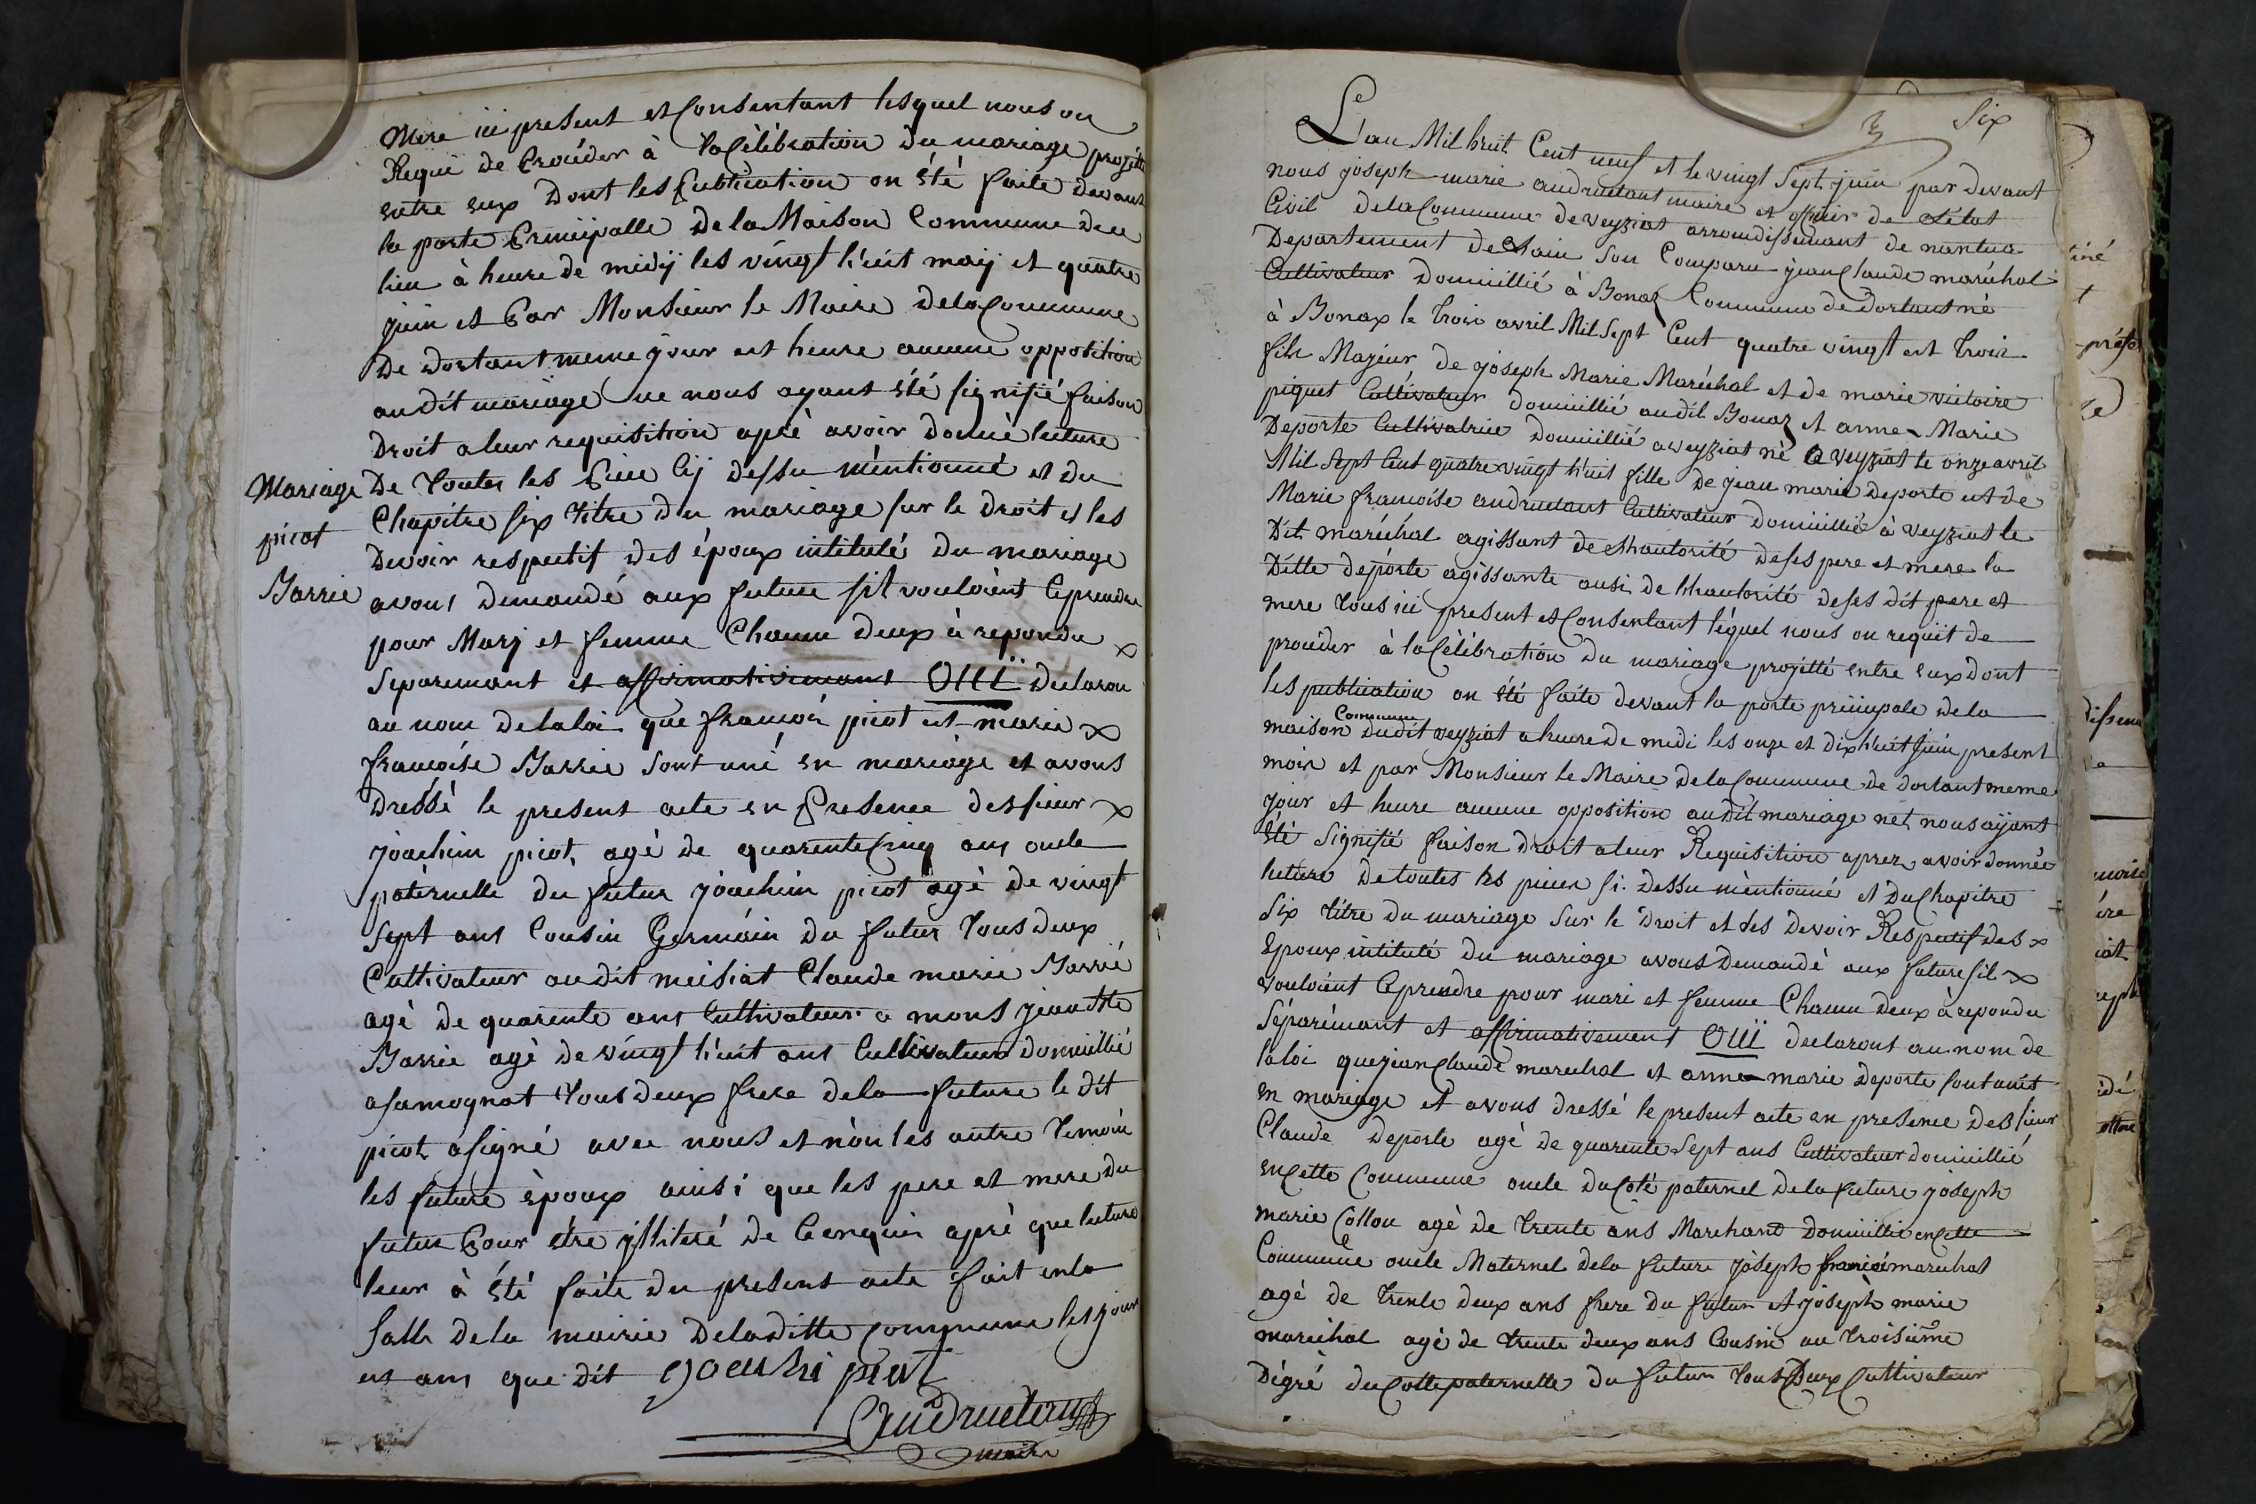 Mere ici present et Consentant lesquel nous on
Requi de Proceder à la Célébration du mariage projetté
entre eux Dont les Publication on été faite devant
la porte Principalle de la Maison Commune du
lieu à heure de midij les vingt huit maij et quatre
juin et Par Monsieur le Maire de la Commune
De dortant meme jour est heure aucune opposition
audit mariage ne nous ayant été signifié faison
Droit a leur requisition apré avoir donné lecture
De toutes les Piece cij dessu mentionné et du
Chapitre six titre du mariage sur le droit et les
Devoir respectif des époux intitulé du mariage
avons demandé aux future sil vouloient ce prendre
pour Marj et femme Chacun deux à repondu
Separemant et affirmativemant OUï declaron
au nom de la loi que francois picot est marie
francoise Barrie sont uni en mariage et avons
Dressé le present acte en Presence des sieur
joachim picot, agé de quarente cinq ans oncle
paternelle du futur joachim picot agé de vingt
sept ans Cousin Germain du futur tous deux
Cultivateur audit meisiat Claude marie Barrié
agé de quarente ans Cultivateur a mons jean
Barrie agé de vingt huit ans Cultivateur domicillié
a samognat tous deux frere de la future le dit
picot a signé avec nous et non les autre temoin
les future époux ainsi que les pere et mere du
futur Pour etre illiteré de Ce enquis apré que lecture
leur à été faite du present acte fait en la
salle de la mairie de la ditte Commune les jour
et ans que dit joachi picot
Andruetan
maire
Mariage
picot
Barrie
Six
L'an Mil huit Cent neuf et le vingt sept juin par devant
nous joseph marie andruetant maire et officier de l'état
Civil de la Commune de veyziat arrondissemant de nantua
Departement de Lain son Comparu jean Claude maréchal
Cultivateur Domicillié à Bonaz Commune de dortant né
à Bonax le trois avril Mil sept Cent quatre vingt est trois
fils Majeur de joseph Marie Maréchal et de marie victoire
piquet Cultivateur domicillié audit Bonaz et anne Marie
Deporte Cultivatrice Domicillié a veyziat né a veyziat le onze avril
Mil sept Cent quatre vingt huit fille de jean marie deporte est de
Marie francoise andruetant Cultivateur Domicillié à veyziat le
Dit maréchal agissant de Lhautorité de ses pere et mere la
Ditte déporte agissante ausi de Lhautorité de ses dit pere et
mere tous ici present et Consentant léquel nous on requit de
proceder à la Célébration du mariage projetté entre eux dont
les publication on été faite devant la porte principale de la
maison Commune dudit veyziat a heure de midi les onze et dix huit juin present
mois et par Monsieur le Maire de la Commune de dortant meme
jour et heure aucune opposition audit mariage net nous ayant
été signifié faison droit a leur Requisition aprez avoir donnée
lecture de toutes les pieces si. dessu mentionné et du Chapitre
six titre du mariage sur le droit et les Devoir Respectif des
Epoux intitulé du mariage avons demandé aux future sil
vouloient ce prendre pour mari et femme Chacun deux à repondu
séparémant et affirmativement OUï declaront au nom de
la loi que jean Claude marechal et anne marie deporte sont unit
en mariage et avons dressé le present acte en presence des sieur
Claude deporte agé de quarente sept ans Cultivateur domicillié
en Cette Commune oncle du Coté paternel de la future joseph
marie Collon agé de trente ans Marchand domicillié en Cette
Commune oncle Maternel de la future joseph francois maréchal
agé de trente deux ans frere du futur et joseph marie
maréchal agé de trente deux ans Cousin au troisieme
Dégré du Collé paternelle du futur tous Deux Cultivateur